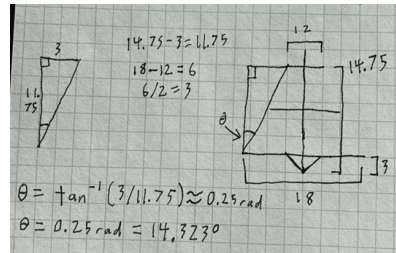 3
11.
75
14.75-3=11.75
18-12=6
6/2=3
12
14.75
θ
3
18
θ = tan⁻¹(3/11.75)≈0.25rad
θ = 0.25rad = 14.323°